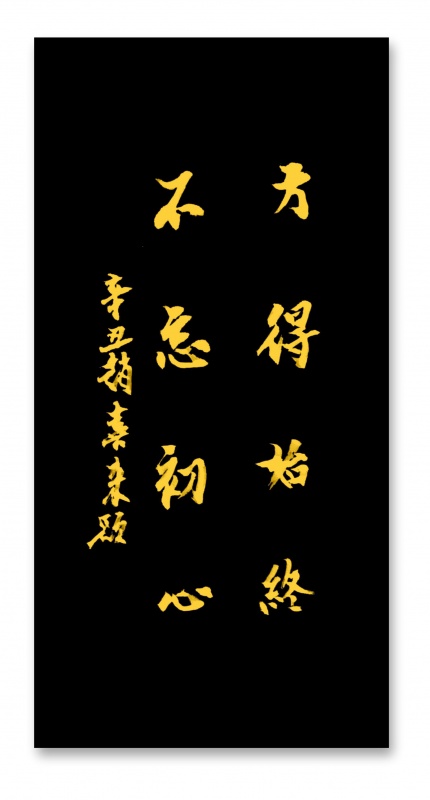 方得始終
不忘初心
辛丑趙喜来題